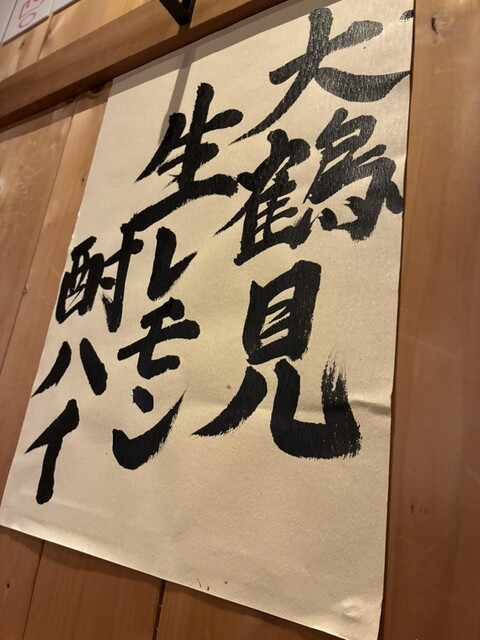 大鶴見
生レモン
酎ハイ